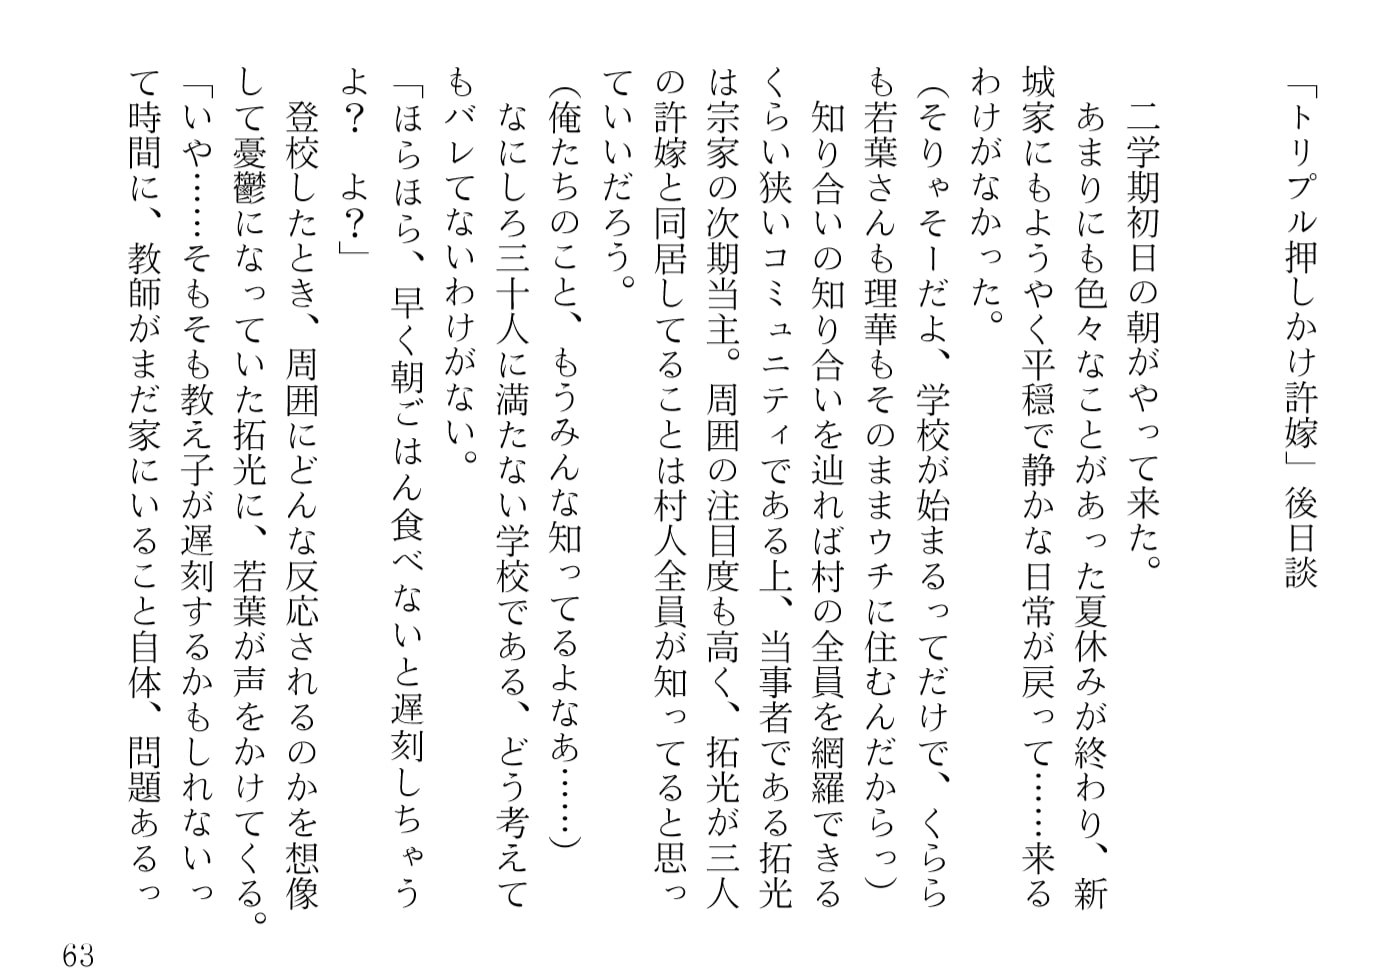 「トリプル押しかけ許嫁」後日談
二学期初日の朝がやって来た。
あまりにも色々なことがあった夏休みが終わり、新
城家にもようやく平穏で静かな日常が戻って……来る
わけがなかった。
（そりゃそーだよ、学校が始まるってだけで、くらら
も若葉さんも理華もそのままウチに住むんだからっ）
知り合いの知り合いを辿れば村の全員を網羅できる
くらい狭いコミュニティである上、当事者である拓光
は宗家の次期当主。周囲の注目度も高く、拓光が三人
の許嫁と同居してることは村人全員が知ってると思っ
ていいだろう。
（俺たちのこと、もうみんな知ってるよなあ……）
なにしろ三十人に満たない学校である、どう考えて
もバレてないわけがない。
「ほらほら、早く朝ごはん食べないと遅刻しちゃう
よ？　よ？」
登校したとき、周囲にどんな反応されるのかを想像
して憂鬱になっていた拓光に、若葉が声をかけてくる。
「いや……そもそも教え子が遅刻するかもしれないっ
て時間に、教師がまだ家にいること自体、問題あるっ
63